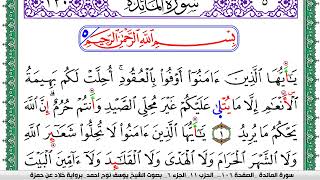 ١٢٠ سورة المائدة ٥
بِسْمِ اللَّهِ الرَّحْمَٰنِ الرَّحِيمِ
يَٰٓأَيُّهَا الَّذِينَ ءَامَنُوٓا۟ أَوْفُوا۟ بِالْعُقُودِ أُحِلَّتْ لَكُم بَهِيمَةُ
الْأَنْعَٰمِ إِلَّا مَا يُتْلَىٰ عَلَيْكُمْ غَيْرَ مُحِلِّي الصَّيْدِ وَأَنتُمْ حُرُمٌ إِنَّ اللَّهَ
يَحْكُمُ مَا يُرِيدُ ١ يَٰٓأَيُّهَا الَّذِينَ ءَامَنُوا۟ لَا تُحِلُّوا۟ شَعَٰٓئِرَ اللَّهِ
وَلَا الشَّهْرَ الْحَرَامَ وَلَا الْهَدْيَ وَلَا الْقَلَٰٓئِدَ وَلَآ ءَآمِّينَ الْبَيْتَ
سورة المائدة .. الصفحة ١٠٦ ... الحزب ١١ .. الجزء ٦ .. بصوت الشيخ يوسف نوح احمد .. برواية خلاد عن حمزة